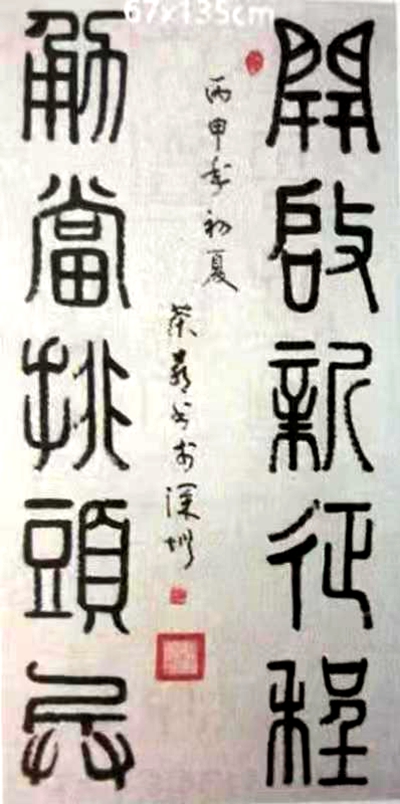 67x135cm
開啟新征程
丙申年初夏
书於深圳
勇當排頭兵